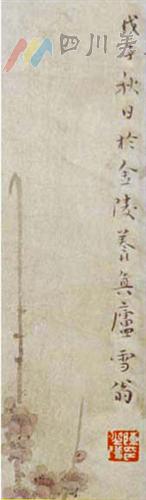 戊寅秋日於金陵養真廬雪翁
四川美